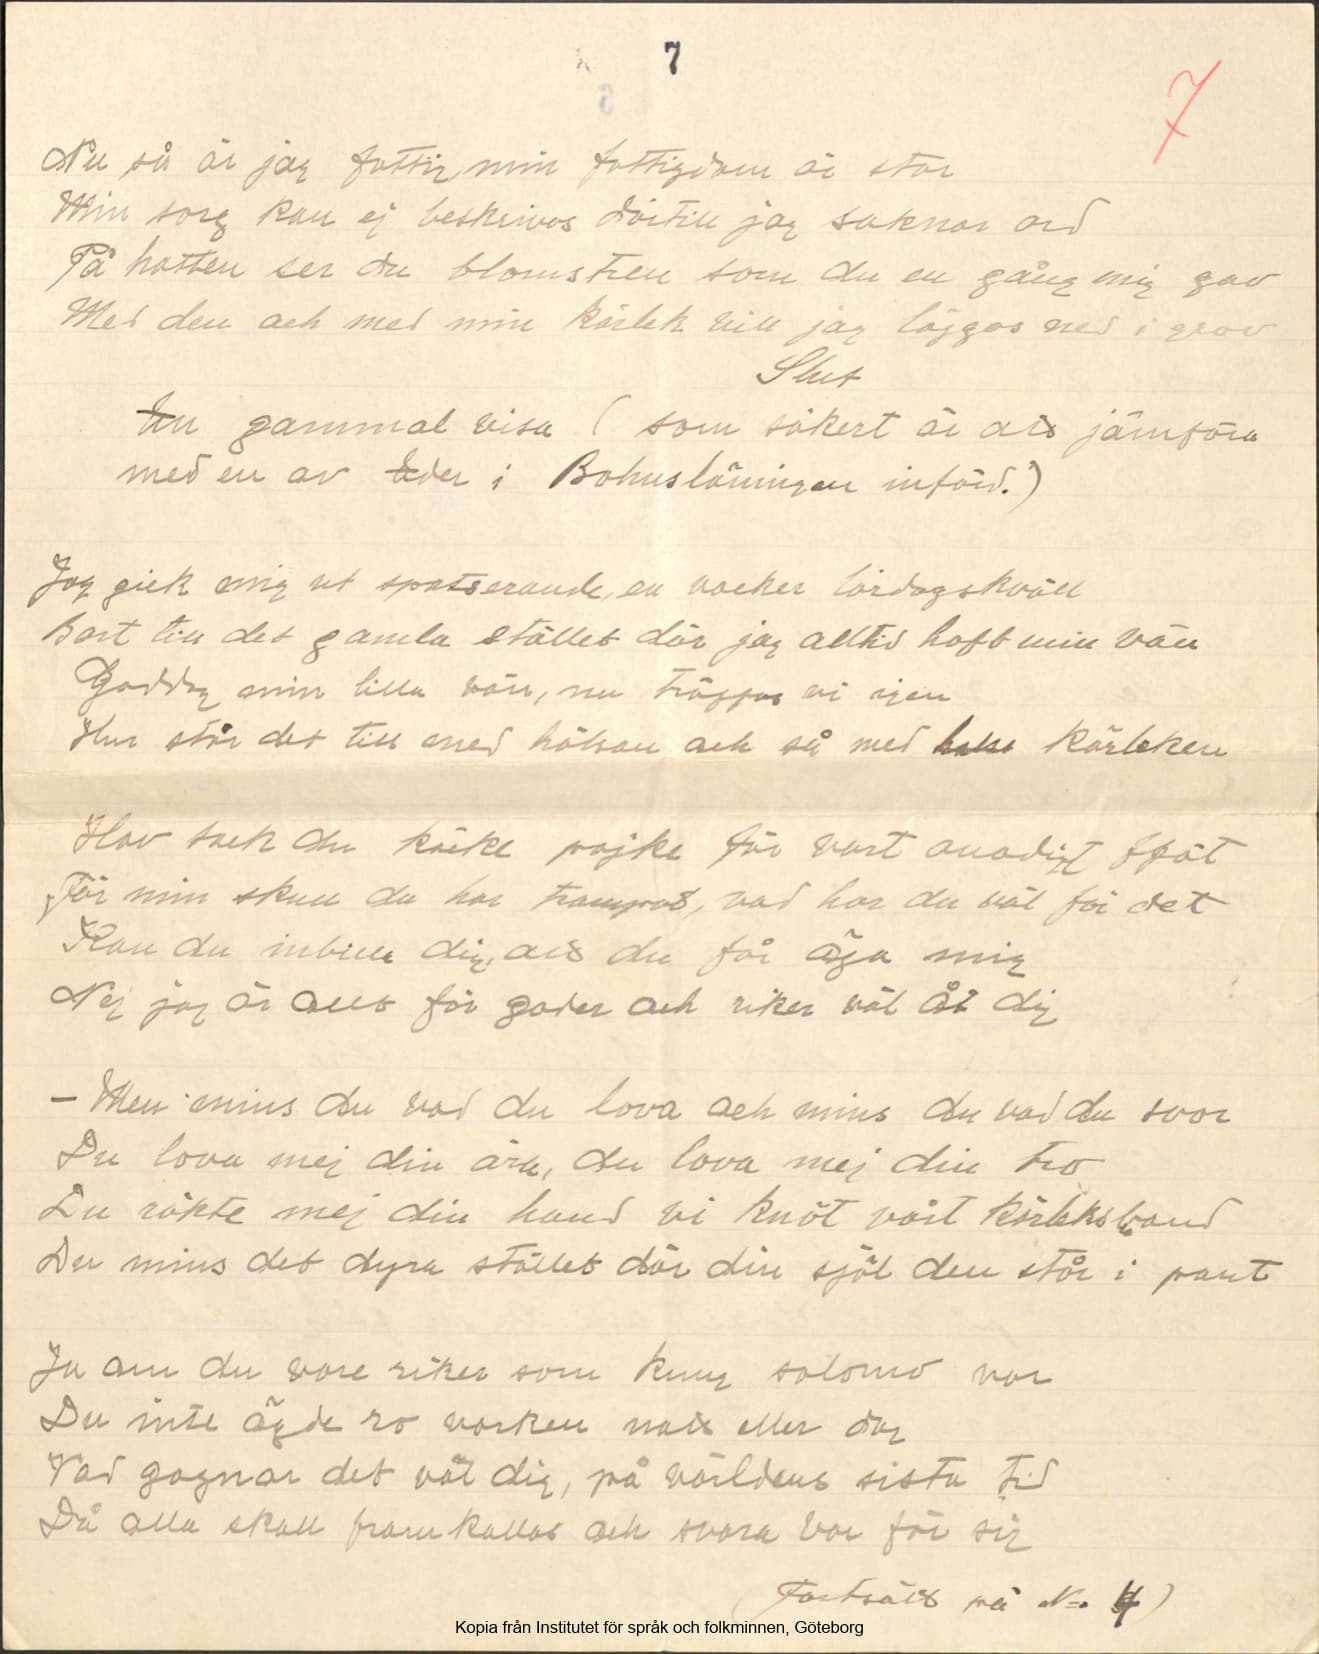 7
7
Nu så är jag fattig, min fattigdom är stor
Min sorg kan ej beskrivas därtill jag saknar ord
På hatten ser du blomstren som du en gång mig gav
Med den och med min kärlek vill jag läggas ned i grav
Slut
En gammal visa ( som säkert är att jämföra
med en av Eder i Bohusläningen införd.)
Jag gick mig ut spatserande, en vacker lördagskväll
Bort till det gamla stället där jag alltid haft min vän
Goddag min lilla vän, nu träffas vi igen
Hur står det till med hälsan och så med kärleken
Hav tack du käcke pojke för vart onödigt spåt
För min skull du har trampat, vad har du väl för det
Kan du inbilla dig, att du får äga mig
Nej jag är allt för goder och riker väl åt dig
— Men mins du vad du lova och mins du vad du svor
Du lova mej din ära, du lova mej din tro
Du räkte mej din hand vi knöt vårt kärleksband
Du mins det dyra stället där din själ den står i pant
Ja om du vore riker som kung salomo var
Du inte ägde ro varken natt eller dag
Vad gagnar det väl dig, på världens sista tid
Då alla skall framkallas och svara var för sig
(Fortsätt på No.)
Kopia från Institutet för språk och folkminnen, Göteborg